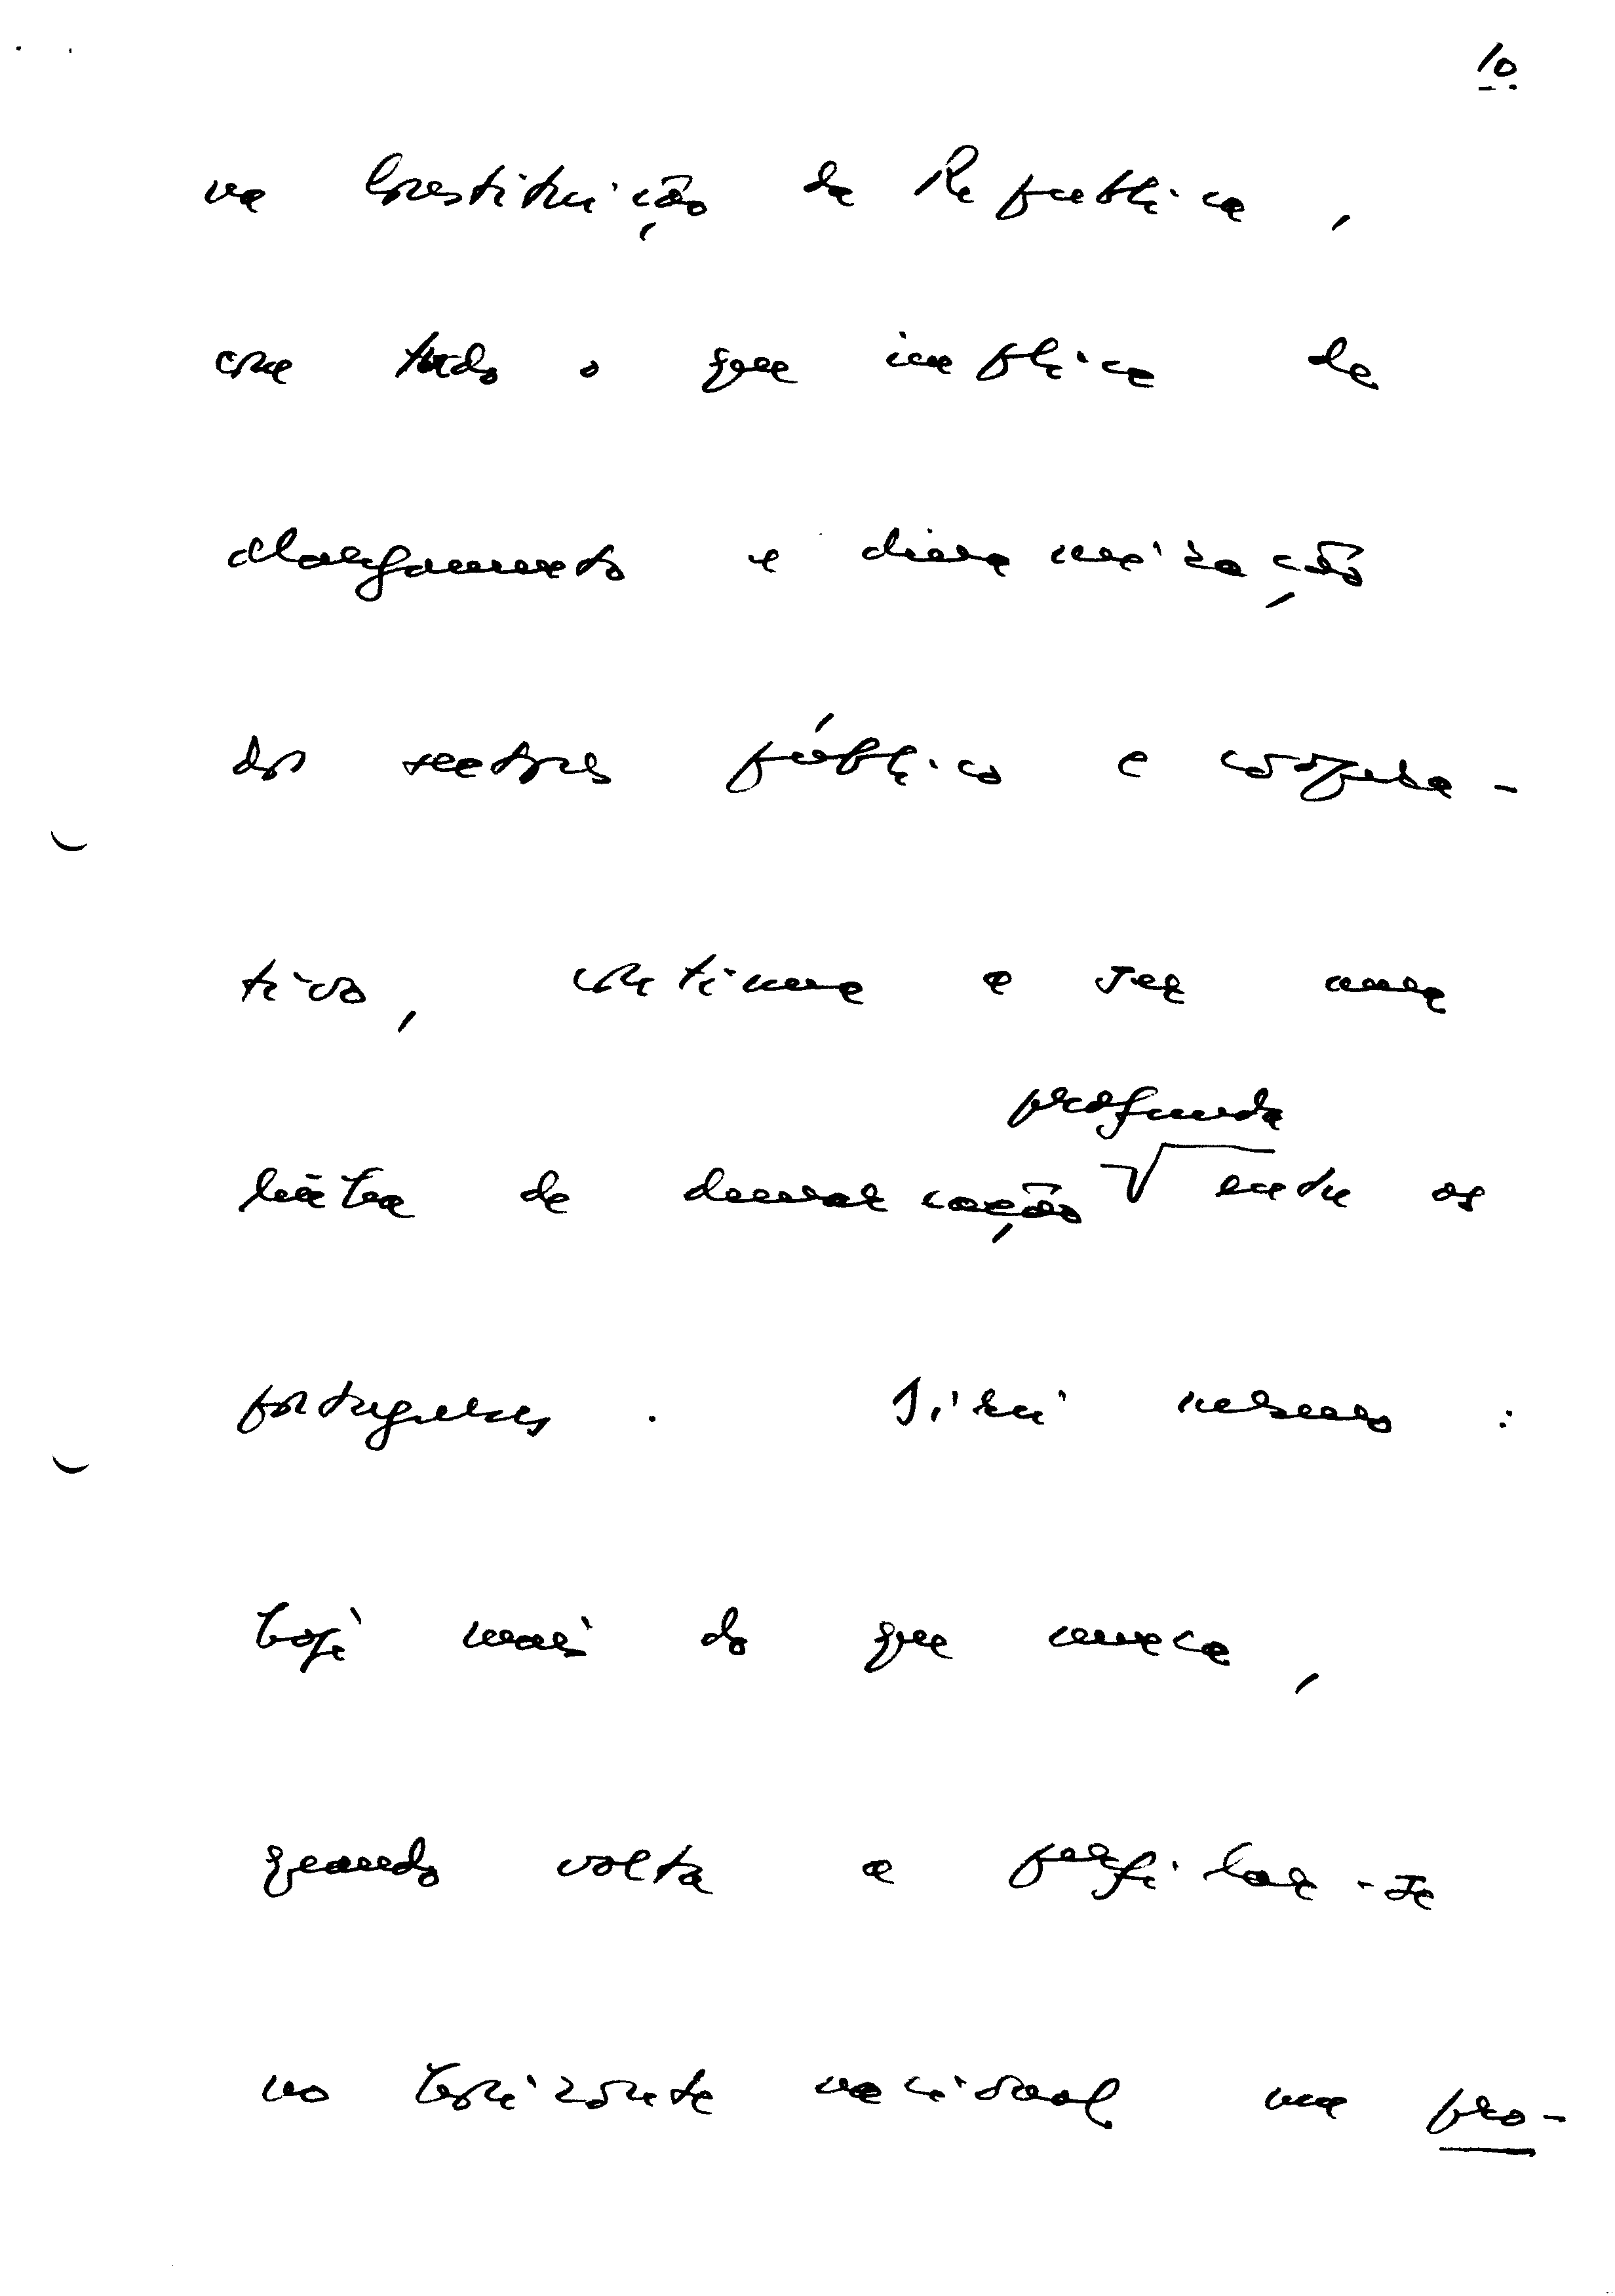 10
na Constituição da Republica,
com tudo o que implica de
alargamento e dinamização
dos sectores público e coopera-
tivo, continua a ser uma
profunda
linha de demarcação √ entre os
portugueses. Direi mesmo:
hoje mais do que nunca,
quando volta a perfilar-se
no horizonte nacional um pro-